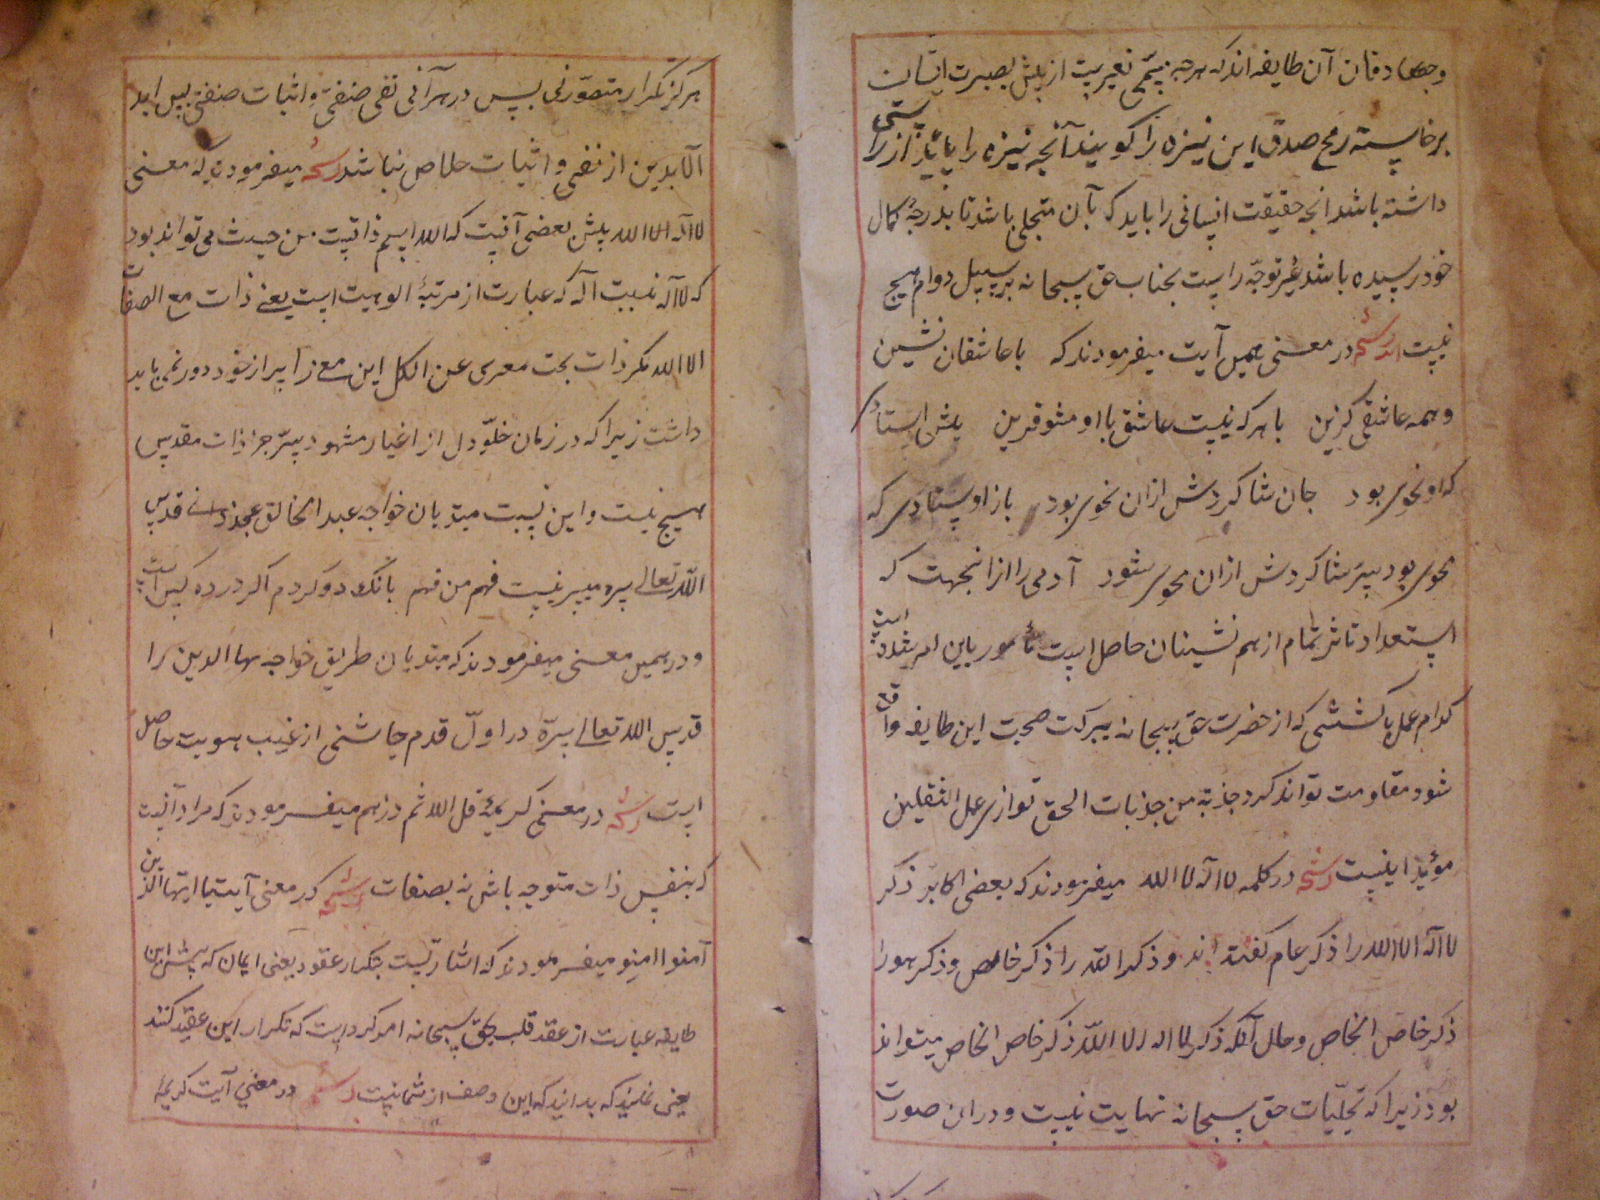 و جمعا دقان آن طایفه اند که هرچه بتیمی غیریت از پیش بصیرت ایشان
برخاسته رمح صدق این نیزه را کویند آنچه نیزه را باید از راستی
داشته باشد انچه حقیقت انسانی را باید که بآن متجلی باشد تا بدرجهٔ کمال
خود رسیده باشد غیر توجّه راست بجناب حق سبحانه برسبیل دوام هیچ
نیست رشحه در معنی همین آیت میفرمودند که با عاشقان نشین
و همه عاشقی کزین با هر که نیست عاشق با او مشو قرین پیش استاد
که او نحوی بود جان شاکردش ازان نحوی بود باز اوستادی که
محوی بود سپر شاکردش ازان محوی شود آدمی را از انجهت که
استعداد تاثر تمام از هم نشینان حاصل است مامور باین امر شده است
کدام عمل با کششی که از حضرت حق سبحانه ببرکت صحبت این طایفه واقع
شود مقاومت تواند کرد جذبة من جذبات الحق توازی عمل الثقلین
مؤید اینست رشحه در کلمه لا اله الا الله میفرمودند که بعضی اکابر ذکر
لا اله الا الله را ذکر عام کفته اند و ذکر الله را ذکر خاص و ذکر هو را
ذکر خاص الخاص و حال آنکه ذکر لا اله الا الله ذکر خاص الخاص میتواند
بود زیرا که تجلیّات حق سبحانه نهایت نیست و دران صورت
هرکز تکرار متصوّر نی پس در هر آنی نفی صفتی و اثبات صفتی پس ابد
الآبدین از نفی و اثبات خلاص نباشد رشحه میفرمودند که معنی
لا اله الا الله پیش بعضی آنست که الله اسم ذاتست من حیث هی تواند بود
که لا اله نیست اله که عبارت از مرتبهٔ الوهیت است یعنی ذات مع الصفات
الا الله مکر ذات بحت معری عن الکل این معنی را پر از خود دور نمی باید
داشت زیرا که در زمان خلوّ دل از اغیار مشهود بسّر جز ذات مقدس
هیچ نیست و این نسبت مبتدیان خواجه عبد الخالق غجدوانی قدس
الله تعالی سره میسر نیست فهم من فهم بانک دو کردم اکر در ده کس است
و در همین معنی میفرمودند که مبتدیان طریق خواجه بهاالدین را
قدس الله تعالی سرّه در اول قدم چاشنی از غیب هویت حاصل
است رشحه در معنی کریمهٔ قل الله ثم ذرهم میفرمودند که مراد آنست
که بنفس ذات متوجه باش نه بصفات رشحه در معنی آیت یا ایها الذین
آمنوا امنو میفرمودند که اشارتست بتکرار عقود یعنی ایمان که پیش این
طایفه عبارت از عقد قلب بحق سبحانه امر کرده است که تکرار این عقد کنند
یعنی که بدانید که این وصف از شما نیست رشحه در معنی آیت کریمهٔ